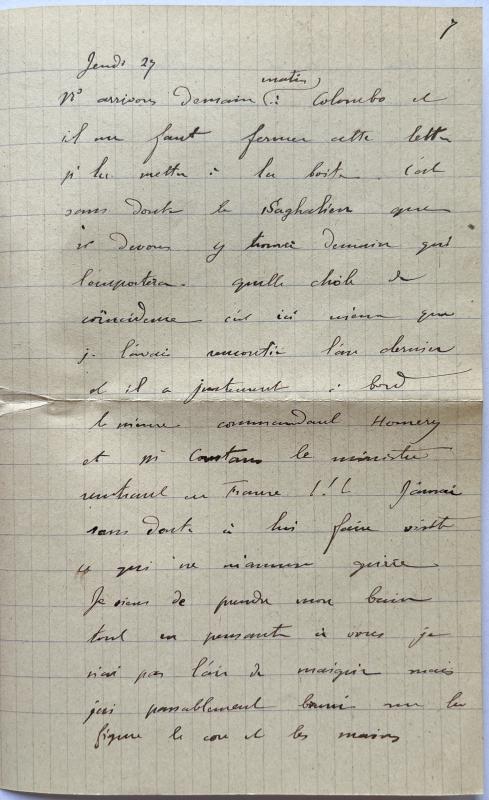 7
Jeudi 27
Ns arrivons demain matin à Colombo et
il me faut fermer cette lettre
p. la mettre à la boite. C'est
sans doute le Saghalien que
ns devons y trouver demain qui
l'emportera. quelle drôle de
coïncidence c'est ici même que
je l'avais rencontré l'an dernier
et il a justement à bord
le même commandant Homery
et Mr Constans le ministre
rentrant en France !!! J'aurai
sans doute à lui faire visite
ce qui ne m'amuse guère
Je viens de prendre mon bain
tout en pensant à vous je
n'ai pas l'air de maigrir mais
j'ai passablement bruni sur la
figure le cou et les mains